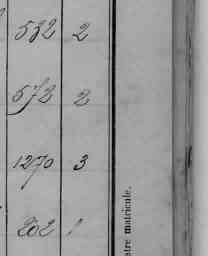 532 2
572 2
1270 3
202 1
stre matricule.